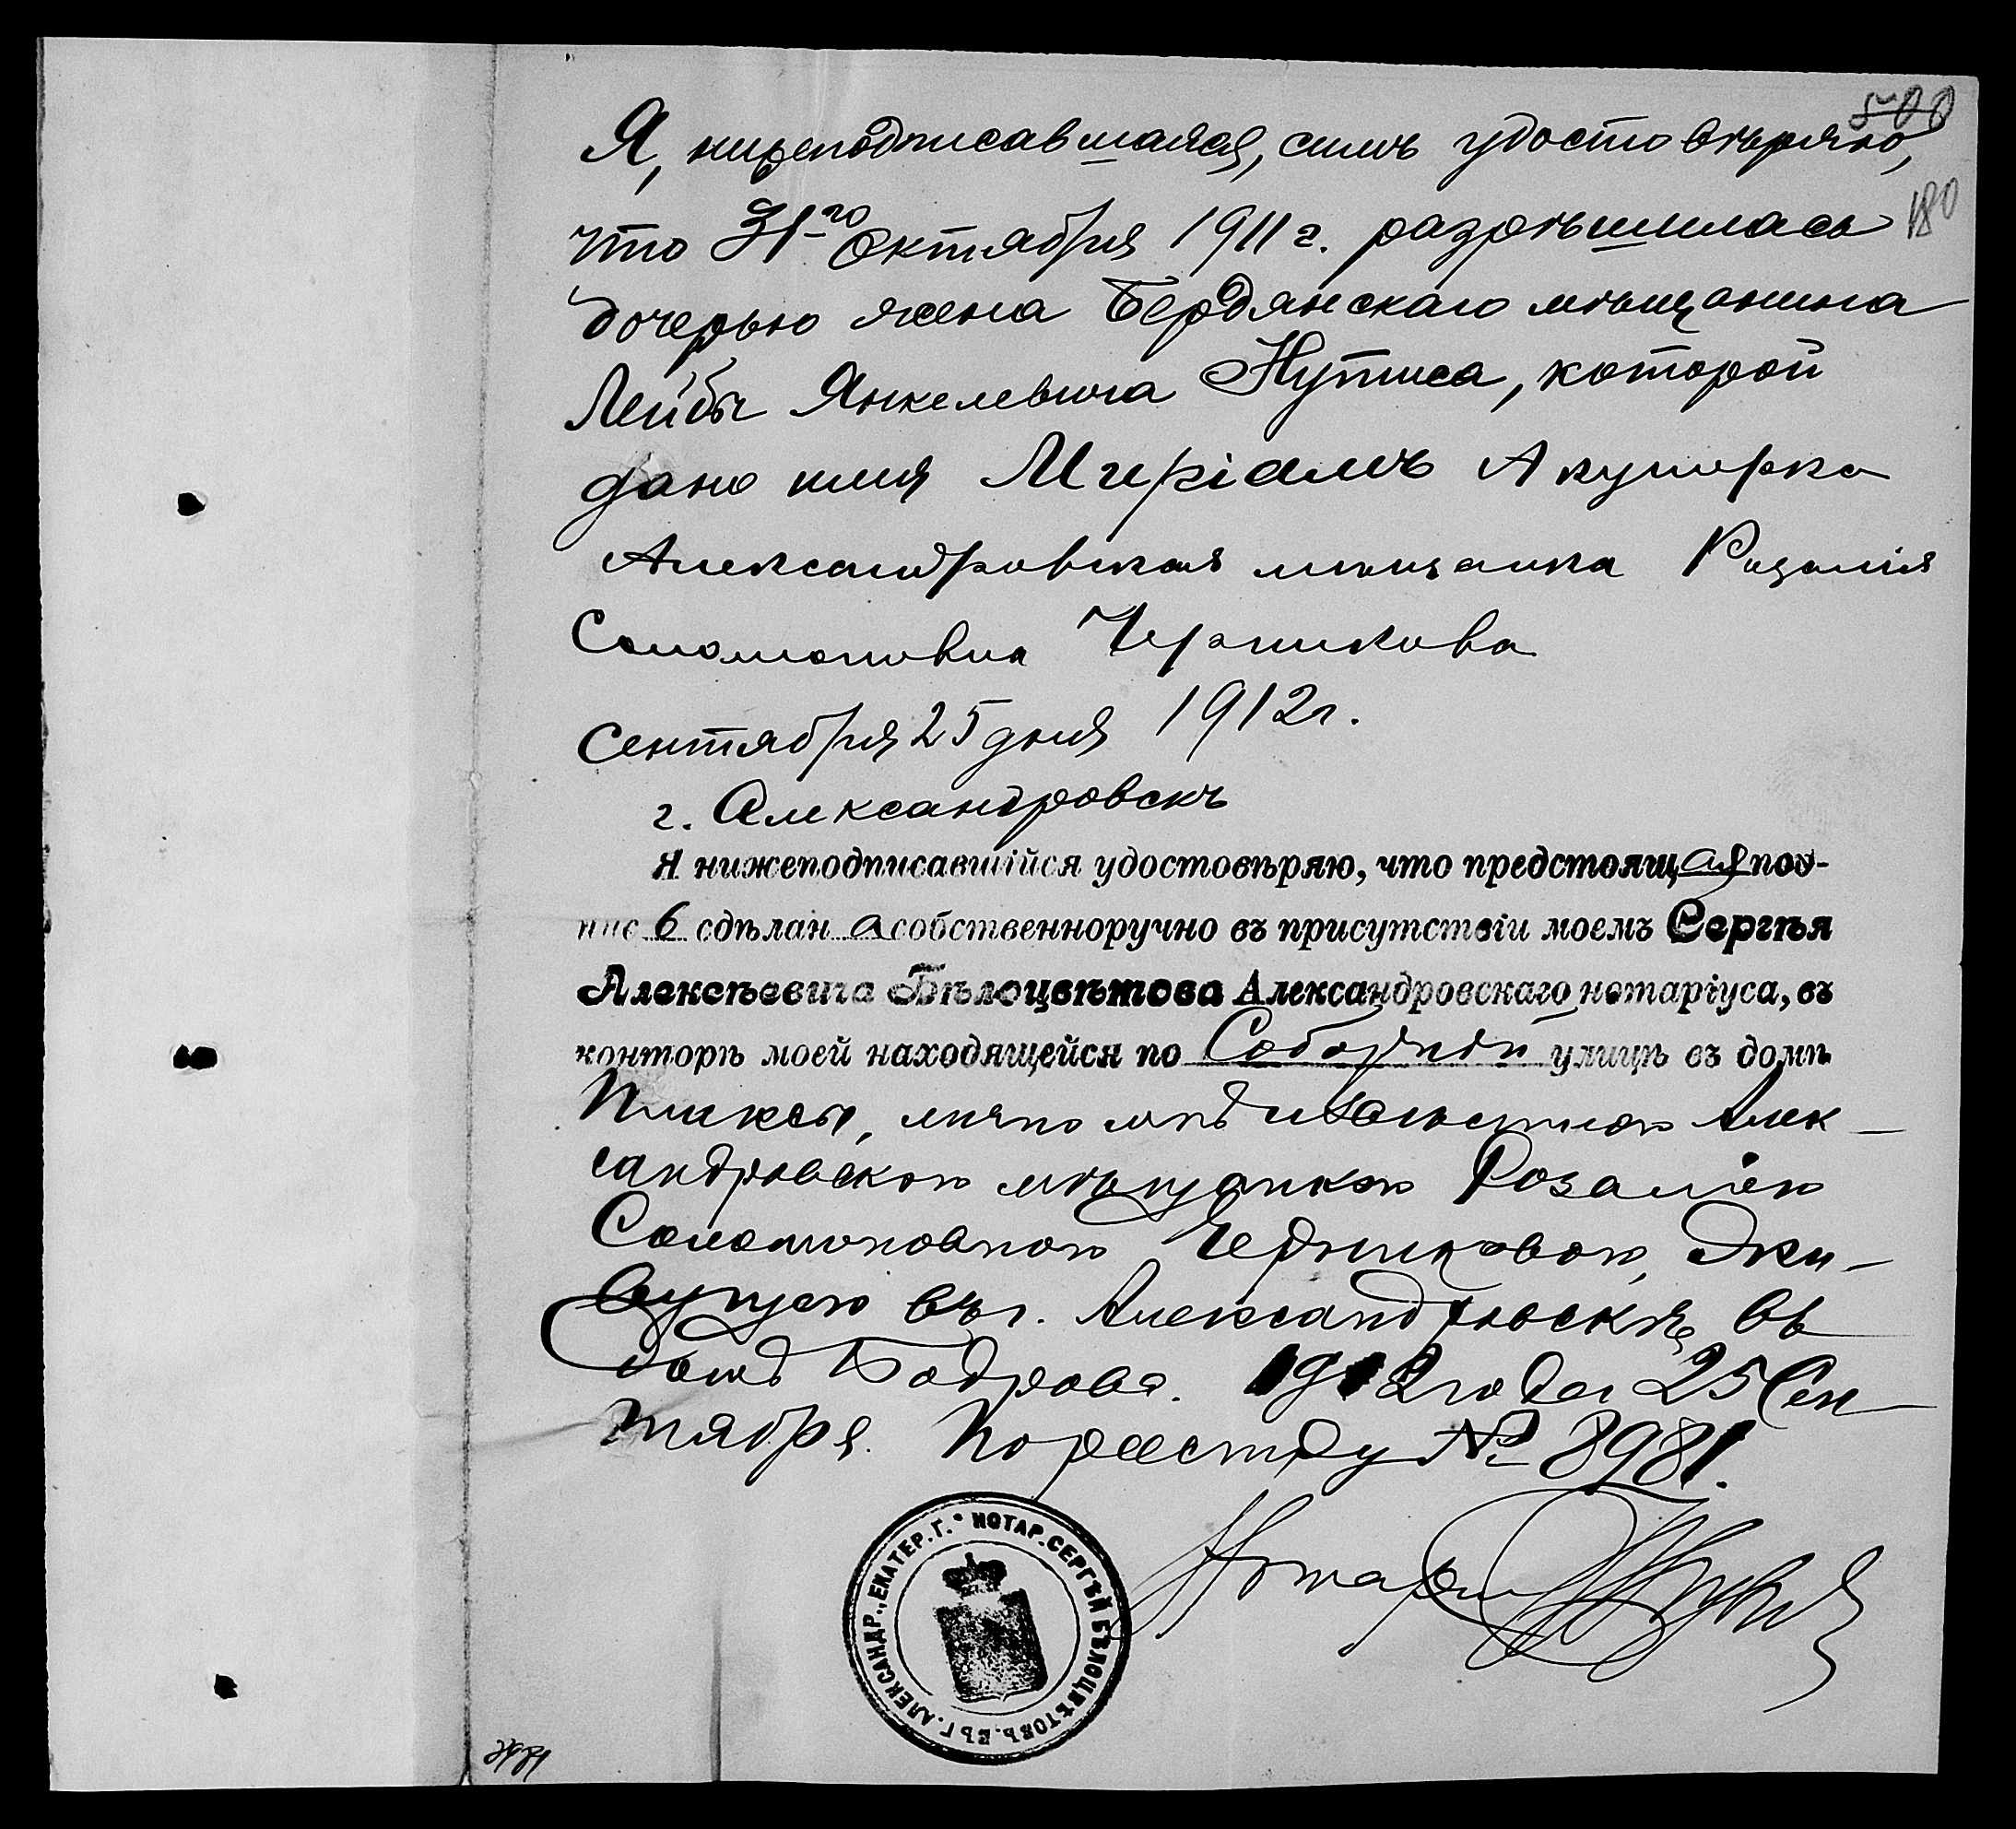 500
Я, нижеподписавшаяся, симъ удостовѣряю,
180
что 31-го Октября 1911 г. разрѣшилась
дочерью жена Бердянскаго мѣщанина
Лейбы Янкелевича Нутиса, которой
дано имя Миріамъ Акушерка
Александровская мѣщанка Розалія
Соломоновна Черникова
Сентября 25 дня 1912 г.
г. Александровскъ
Я нижеподписавшійся удостовѣряю, что предстоящая под-
пись сдѣлана собственноручно въ присутствіи моемъ Сергѣя
Алексѣевича Бѣлоцвѣтова Александровскаго нотаріуса, въ
конторѣ моей находящейся по Соборной улицѣ въ домѣ
лично мнѣ извѣстною Алек-
сандровскою мѣщанкою Розаліею
Соломоновною Черниковою, жи-
вущею въ г. Александровскѣ, въ
домѣ Бодрова. 1912 года 25 Сен-
тября. По реестру № 8981.
Нотаріусъ
НОТАР. СЕРГѢЙ БѢЛОЦВѢТОВЪ. ВЪ Г. АЛЕКСАНДР., ЕКАТЕР. Г.